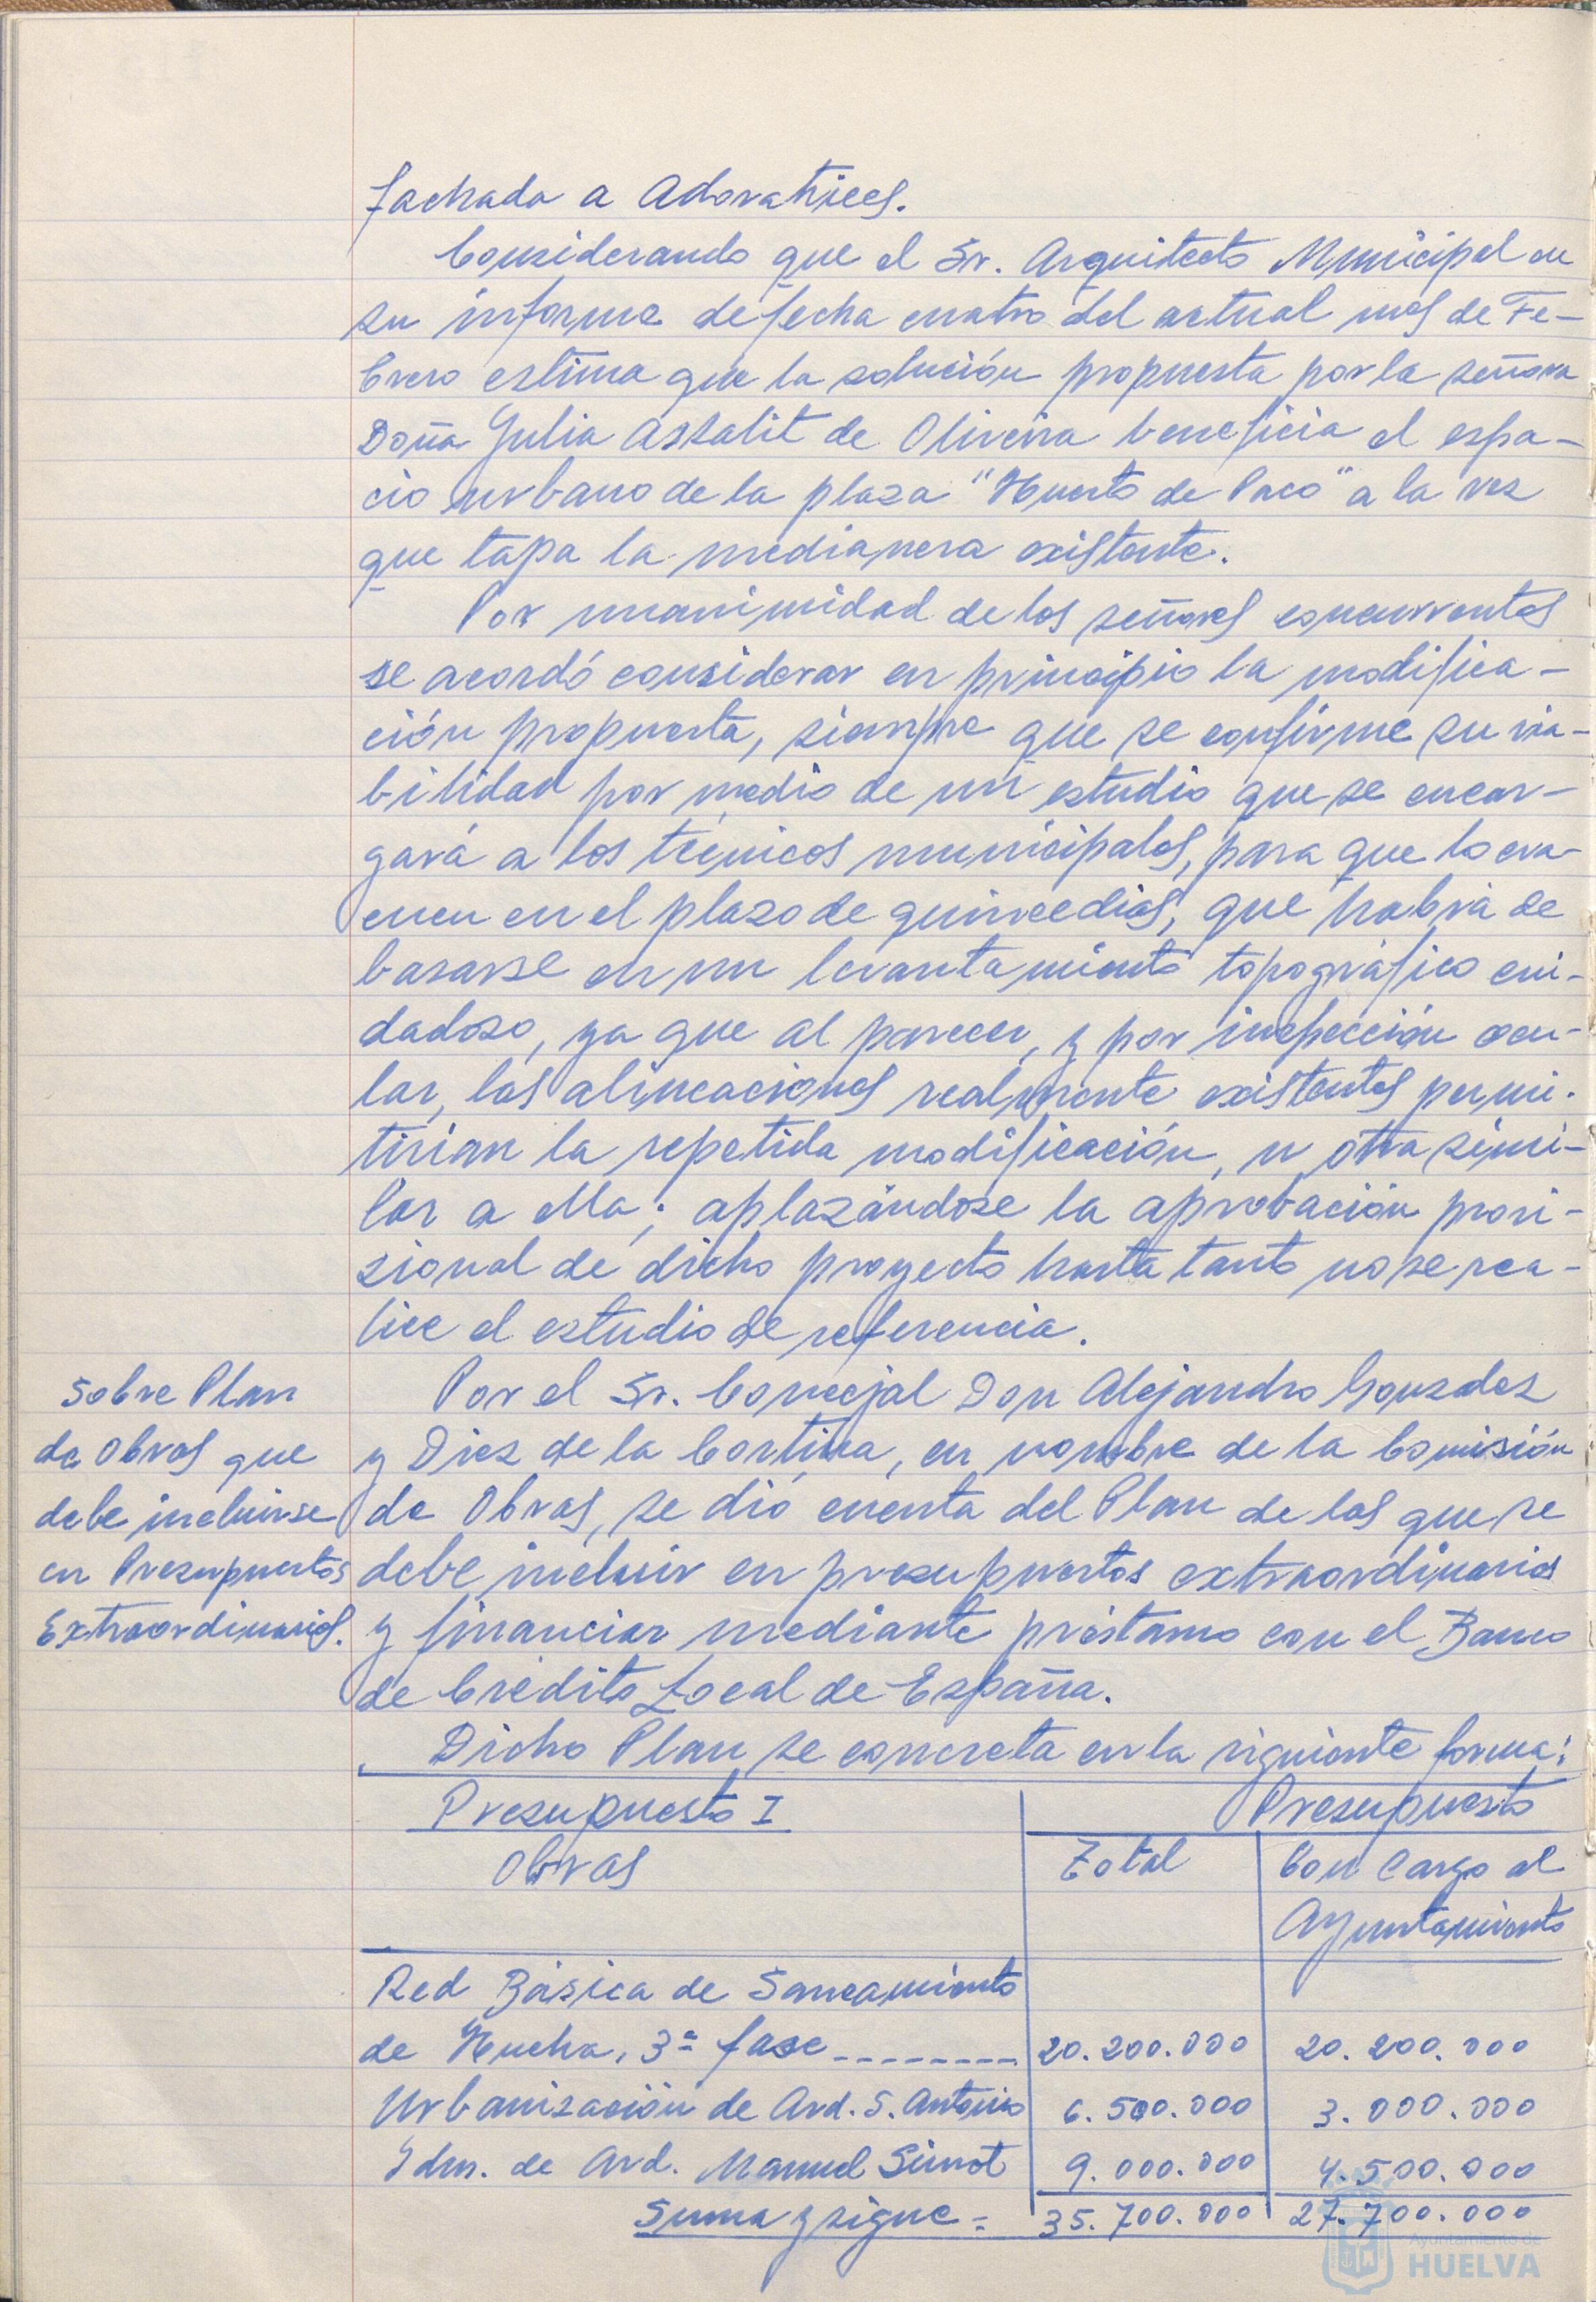 fachada a Adoratrices.
Considerando que el Sr. Arquitecto Municipal en
su informe de fecha cuatro del actual mes de Fe-
brero estima que la solución propuesta por la señora
Doña Julia Assalit de Oliveira beneficia el espa-
cio urbano de la plaza "Huerto de Paco" a la vez
que tapa la medianera existente.
Por unanimidad de los señores concurrentes
se acordó considerar en principio la modifica-
ción propuesta, siempre que se confirme su via-
bilidad por medio de un estudio que se encar-
gará a los técnicos municipales, para que lo eva-
cuen en el plazo de quince dias, que habrá de
basarse en un levantamiento topográfico cui-
dadoso, ya que al parecer, y por inspección ocu-
lar, las alineaciones realmente existentes permi-
tirian la repetida modificación, u otra simi-
lar a ella; aplazándose la aprobación provi-
sional de dicho proyecto hasta tanto no se rea-
lice el estudio de referencia.
Sobre Plan
de Obras que
debe incluirse
en Presupuestos
Extraordinarios.
Por el Sr. Concejal Don Alejandro Gonzalez
y Diez de la Cortina, en nombre de la Comisión
de Obras, se dió cuenta del Plan de las que se
debe incluir en presupuestos extraordinarios
y financiar mediante préstamo con el Banco
de Crédito Local de España.
Dicho Plan se concreta en la siguiente forma:
Presupuesto I
Presupuesto
Obras
Total
Con cargo al
Ayuntamiento
Red Básica de Saneamiento
de Huelva, 3ª fase -------- 20.200.000 20.200.000
Urbanización de Avd. S. Antonio 6.500.000 3.000.000
Idm. de Avd. Manuel Siurot 9.000.000 4.500.000
Suma y sigue = 35.700.000 27.700.000
Ayuntamiento de
HUELVA